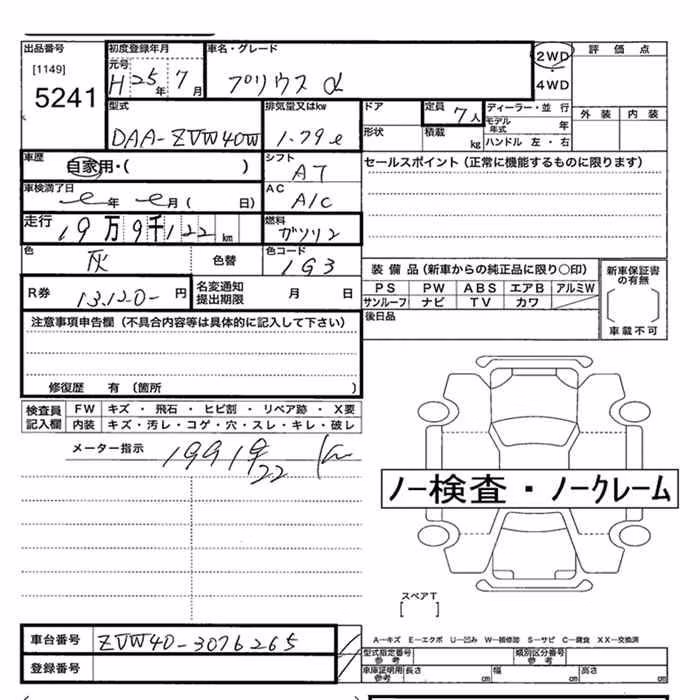 出品番号 初度登録年月 車名・グレード 2WD 評価点
[1149] 元号
5241 H25年7月 プリウスα ・4WD
型式 排気量又はkw ドア 定員 7人 ディーラー・並行 外装 内装
DAA-ZVW40W 1.79ℓ 形状 積載 kg モデル年式 年
ハンドル 左・右
車歴 自家用・( ) シフト AT セールスポイント（正常に機能するものに限ります）
車検満了日 年 月( 日) AC A/C
走行 19万9千122km 燃料 ガソリン
色 灰 色替 色コード 1G3
装備品（新車からの純正品に限り○印） 新車保証書の有無
R券 13,120- 円 名変通知提出期限 月 日 PS PW ABS エアB アルミW
サンルーフ ナビ TV カワ
注意事項申告欄（不具合内容等は具体的に記入して下さい） 後日品 車載不可
修復歴 有（箇所 ）
検査員記入欄 FW キズ・飛石・ヒビ割・リペア跡・X要
内装 キズ・汚レ・コゲ・穴・スレ・キレ・破レ
メーター指示 19919 km
22
ノー検査・ノークレーム
スペアT
[ ]
車台番号 ZVW40-3076265
A―キズ E―エクボ U―凹み W―補修跡 S―サビ C―腐食 XX―交換済
登録番号 型式指定番号 参考 類別区分番号 参考
車庫証明用 参考 長さ cm 幅 cm 高さ cm